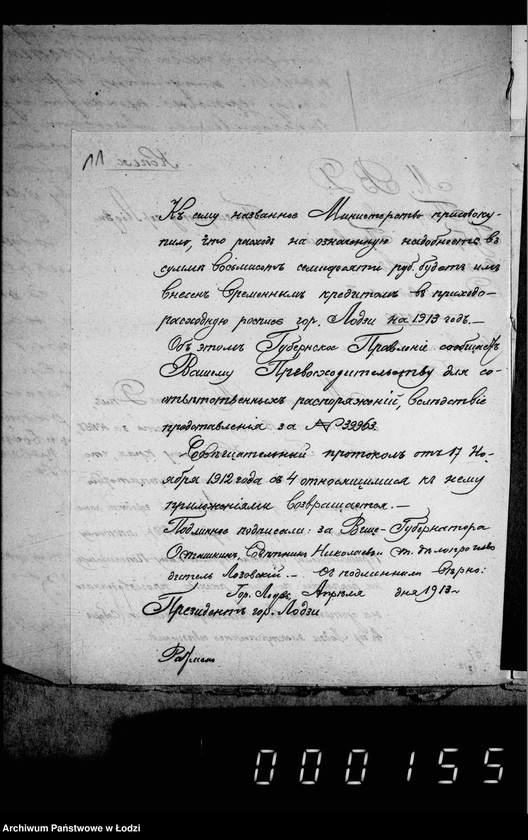 11
Копія
Къ сему названное Министерство присовоку-
пило, что расходъ на означенную надобность въ
суммѣ восемисотъ семидесяти руб. будетъ имъ
внесенъ временнымъ кредитомъ въ приходо-
расходную роспись гор. Лодзи на 1913 годъ.—
Объ этомъ Губернское Правленіе сообщаетъ
Вашему Превосходительству для со-
отвѣтственныхъ распоряженій, вслѣдствіе
представленія за № 39963.
Совѣщательный протоколъ отъ 17 Но-
ября 1912 года съ 4 относящимися къ нему
приложеніями возвращается.—
Подлинное подписали: за Вице-Губернатора
Осташкинъ, Совѣтникъ Николаевъ и. д. дѣлопроизво-
дитель Лозовскій.— Съ подлиннымъ вѣрно:
Гор. Лодзь, Апрѣля дня 1913
Президентъ гор. Лодзи
000155
Archiwum Państwowe w Łodzi